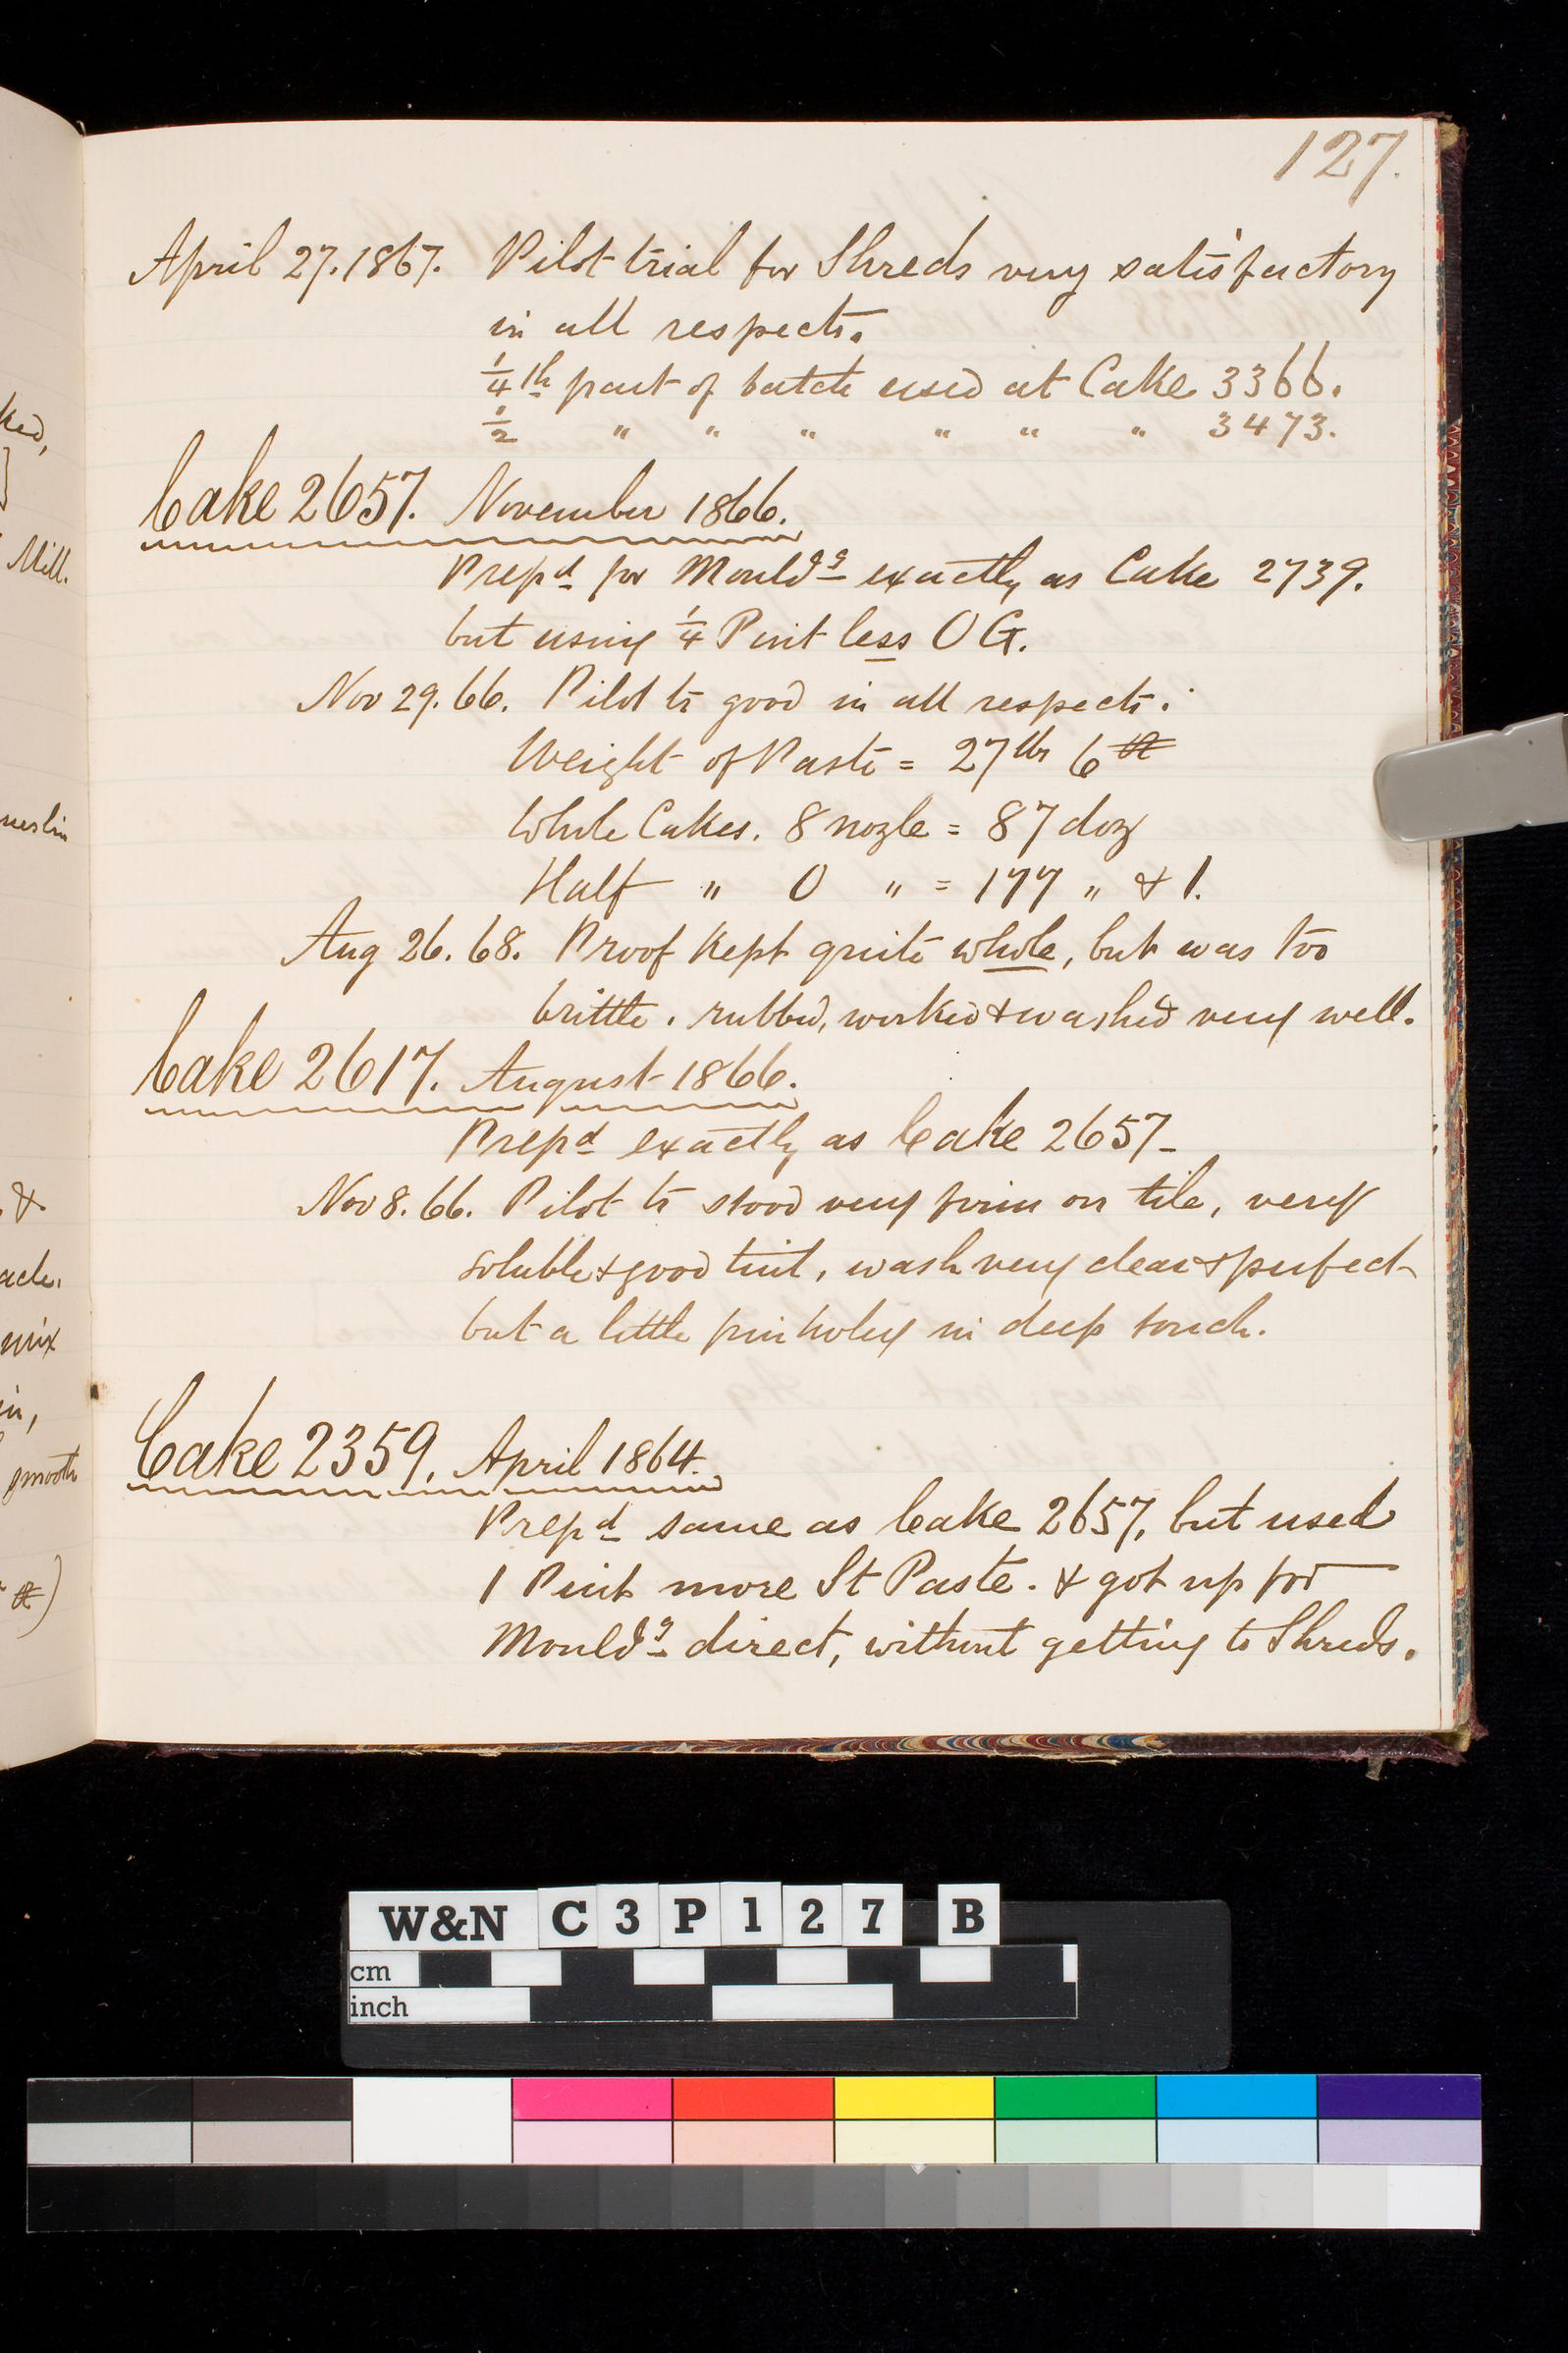 127.
April 27. 1867. Pilot trial for Shreds very satisfactory
in all respects.
1/4th part of batch used at Cake 3366.
1/2 " " " " " " 3473.
Cake 2657. November 1866.
Prepd for Mouldg exactly as Cake 2739.
but using 1/4 Pint less OG.
Nov 29. 66. Pilot tr good in all respects.
Weight of Paste = 27 lbs 6
Whole Cakes. 8 nozle = 87 doz
Half " 0 " = 177 " & 1.
Aug 26. 68. Proof kept quite whole, but was too
brittle. rubbed, worked & washed very well.
Cake 2617. August 1866.
Prepd exactly as Cake 2657-
Nov 8. 66. Pilot tr stood very firm on tile, very
soluble & good tint, wash very clear & perfect
but a little pinholey in deep touch.
Cake 2359. April 1864.
Prepd same as Cake 2657, but used
1 Pint more St Paste. & got up for
Mouldg direct, without getting to Shreds.
ked,
Mill.
&
mix
in,
smooth
W&N C3P127 B
cm
inch